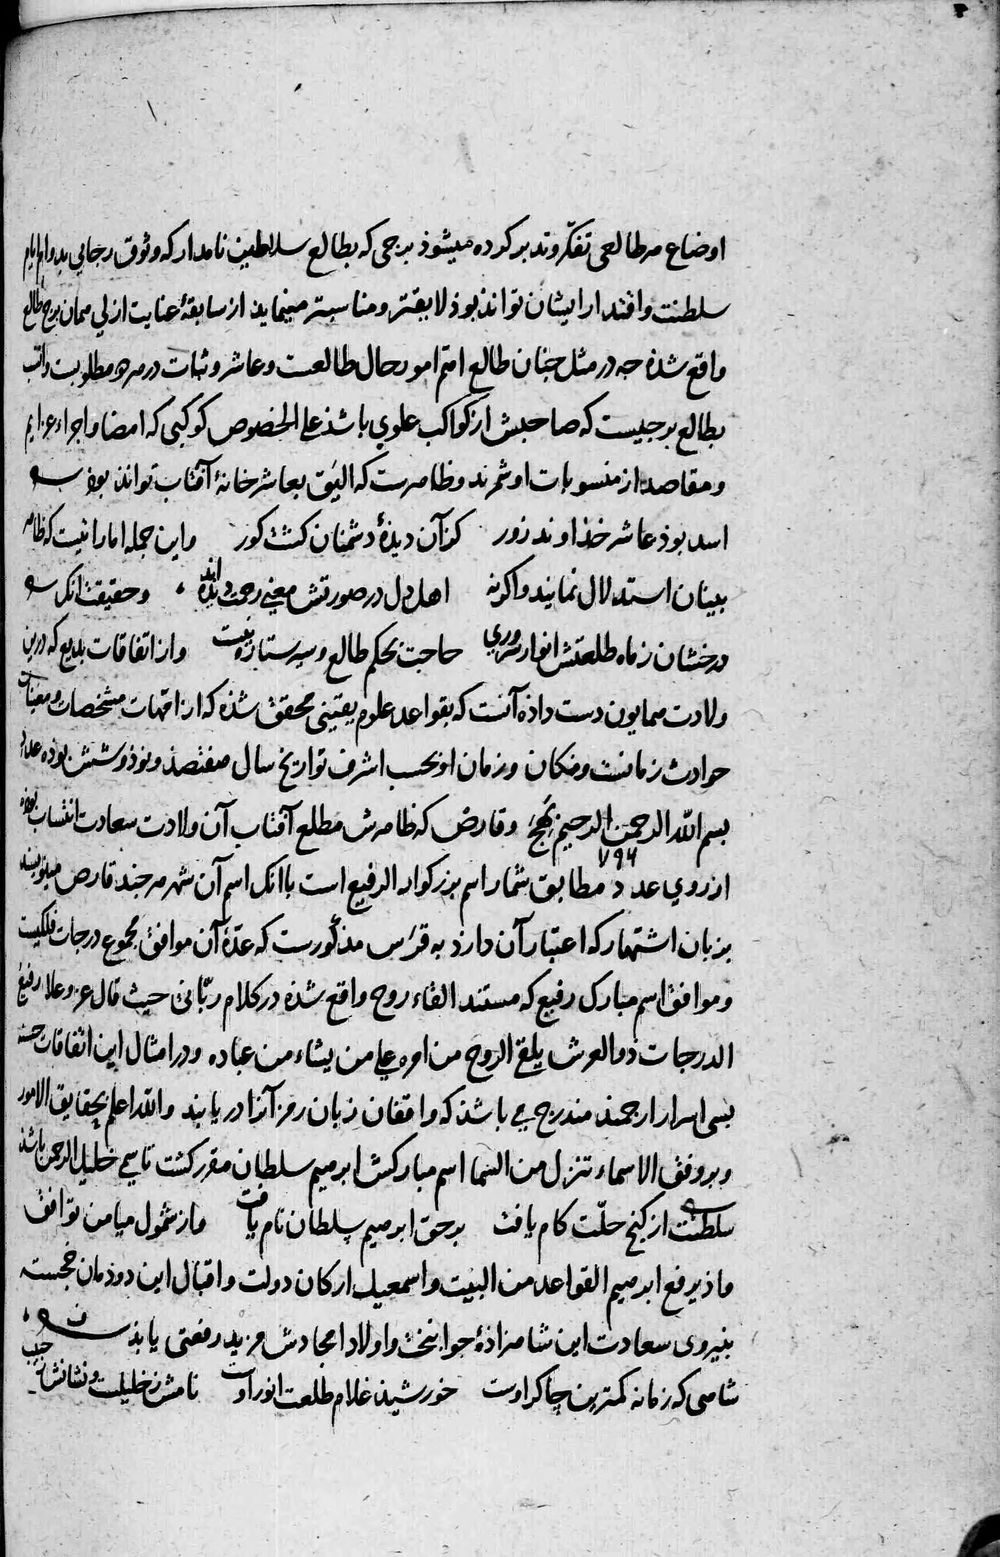 اوضاع هر طالعی تفکر و تدبر کرده میشوذ برجی که بطالع سلاطین نامدار که وثوق رجایی بدوام ایام
سلطنت و اقتدار ایشان تواند بوذ لایقتر و مناسبتر مینماید از سابقهٔ عنایت ازلی همان برج طالع
واقع شده چه در مثل چنان طالع اتم امور حال طالعست و عاشر و ثبات در هر دو مطلوبست و انسب
بطالع برجیست که صاحبش از کواکب علوی باشذ علی الخصوص کوکبی که امضا و اجراء عزایم
و مقاصد از منسوبات او شمرند و ظاهرست که الیق بعاشر خانهٔ آفتاب تواند بوذ
اسد بوذ عاشر خذاوند زور کزآن دیدهٔ دشمنان کشت کور واین جمله اماراتیست که ظاهر
بینان استدلال نمایند واکرنه اهل دل در صورتش معنی رحمت دیده‌اند وحقیقت انک
درخشان ز ماه طلعتش انوار سروری حاجت بحکم طالع و سیر ستاره نیست و از اتفاقات بدیع که درین
ولادت همایون دست داذه آنست که بقواعد علوم یقینی محقق شذه که از امهات مشخصات و معینات
حوادث زمانست و مکان و زمان او بحسب اشرف تواریخ سال هفتصذ و نوذ و شش بوذه عدد
بسم الله الرحمن الرحیم نهج و قارص که ظاهرش مطلع آفتاب آن ولادت سعادت انتساب بوده
۷۹۶
از روی عدد مطابق شمار اسم بزرکوار الرفیع است باانک اسم آن شهر هرچند قارص مینویسند
بزبان اشتهار که اعتبار آن دارد به قرس مذکورست که عدهٔ آن موافق مجموع درجات فلکیست
و موافق اسم مبارک رفیع که مستند القاء روح واقع شذه در کلام ربانی حیث قال عز و علا رفیع
الدرجات ذو العرش یلقی الروح من امره علی من یشاء من عباده و در امثال این اتفاقات حسنه
بسی اسرار ارجمند مندرج می باشذ که واقفان زبان رمز آنرا دریابند والله اعلم بحقایق الامور
و بر وفق الاسماء تنزل من السما اسم مبارکش ابرهیم سلطان مقرر کشت تا سمی خلیل الرحمن باشذ
سلطنت از کنج خلّت کام یافت بر حق ابرهیم سلطان نام یافت و از شمول میامن توافق
و اذ یرفع ابرهیم القواعد من البیت و اسمعیل ارکان دولت و اقبال این دوذمان خجسته
بنیروی سعادت این شاهزاذهٔ جوانبخت و اولاد امجادش مزید رفعتی یابذ
شاهی که زمانه کمترین چاکر اوست خورشید غلام طلعت انور اوست نامش ز خلیلست و نشانش ز حبیب